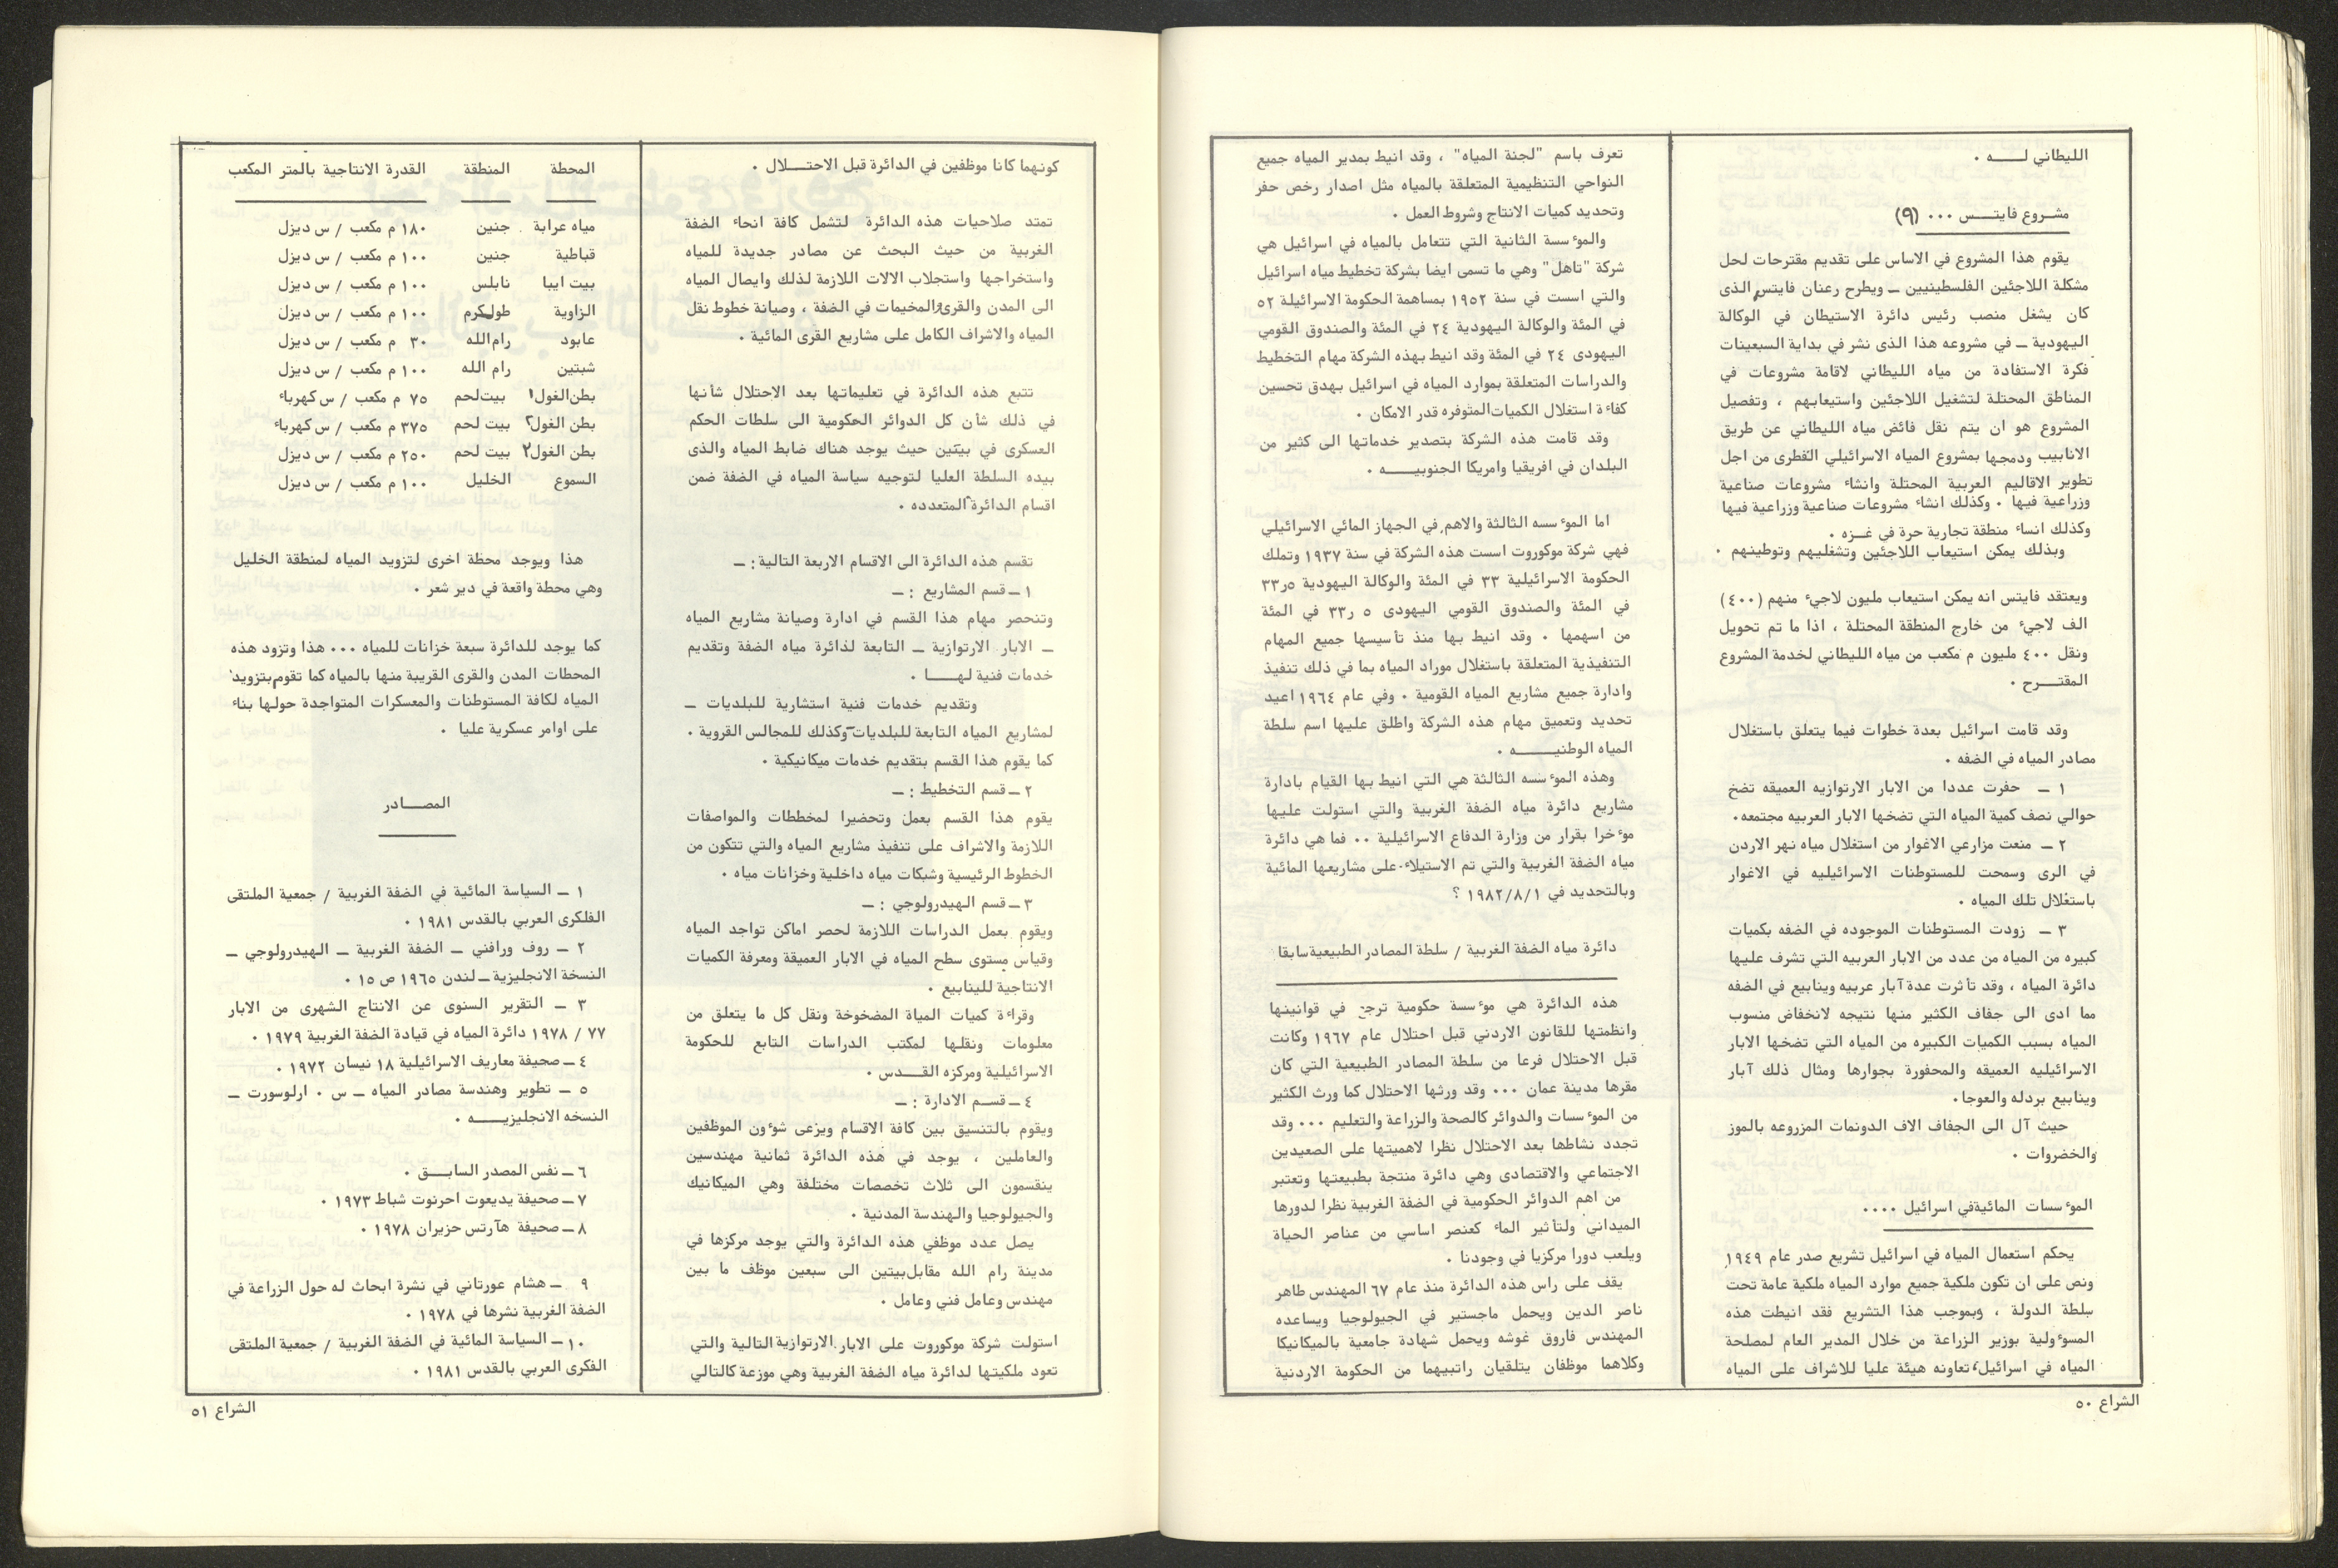 الليطاني لـــــه ٠
مشــروع فايتـــس ٠٠٠ (٩)
يقوم هذا المشروع في الاساس على تقديم مقترحات لحل
مشكلة اللاجئين الفلسطينيين ــ ويطرح رعنان فايتس الذى
كان يشغل منصب رئيس دائرة الاستيطان في الوكالة
اليهودية ــ في مشروعه هذا الذى نشر في بداية السبعينات
فكرة الاستفادة من مياه الليطاني لاقامة مشروعات في
المناطق المحتلة لتشغيل اللاجئين واستيعابهم ، وتفصيل
المشروع هو ان يتم نقل فائض مياه الليطاني عن طريق
الانابيب ودمجها بمشروع المياه الاسرائيلي القطرى من اجل
تطوير الاقاليم العربية المحتلة وانشاء مشروعات صناعية
وزراعية فيها ٠ وكذلك انشاء مشروعات صناعية وزراعية فيها
وكذلك انساء منطقة تجارية حرة في غــزه ٠
وبذلك يمكن استيعاب اللاجئين وتشغليهم وتوطينهم ٠
ويعتقد فايتس انه يمكن استيعاب مليون لاجيء منهم (٤٠٠)
الف لاجيء من خارج المنطقة المحتلة ، اذا ما تم تحويل
ونقل ٤٠٠ مليون م مكعب من مياه الليطاني لخدمة المشروع
المقتـــرح ٠
وقد قامت اسرائيل بعدة خطوات فيما يتعلق باستغلال
مصادر المياه في الضفه ٠
١ ــ حفرت عددا من الابار الارتوازيه العميقه تضخ
حوالي نصف كمية المياه التي تضخها الابار العربيه مجتمعه٠
٢ ــ منعت مزارعي الاغوار من استغلال مياه نهر الاردن
في الرى وسمحت للمستوطنات الاسرائيليه في الاغوار
باستغلال تلك المياه ٠
٣ ــ زودت المستوطنات الموجوده في الضفه بكميات
كبيره من المياه من عدد من الابار العربيه التي تشرف عليها
دائرة المياه ، وقد تأثرت عدة آبار عربيه وينابيع في الضفه
مما ادى الى جفاف الكثير منها نتيجه لانخفاض منسوب
المياه بسبب الكميات الكبيره من المياه التي تضخها الابار
الاسرائيليه العميقه والمحفورة بجوارها ومثال ذلك آبار
وينابيع بردله والعوجا٠
حيث آل الى الجفاف الاف الدونمات المزروعه بالموز
والخضروات ٠
المؤسسات المائيةفي اسرائيل ٠٠٠٠
يحكم استعمال المياه في اسرائيل تشريع صدر عام ١٩٤٩
ونص على ان تكون ملكية جميع موارد المياه ملكية عامة تحت
سلطة الدولة ، وبموجب هذا التشريع فقد انيطت هذه
المسؤولية بوزير الزراعة من خلال المدير العام لمصلحة
المياه في اسرائيل، تعاونه هيئة عليا للاشراف على المياه
تعرف باسم "لجنة المياه" ، وقد انيط بمدير المياه جميع
النواحي التنظيمية المتعلقة بالمياه مثل اصدار رخص حفر
وتحديد كميات الانتاج وشروط العمل ٠
والمؤسسة الثانية التي تتعامل بالمياه في اسرائيل هي
شركة "تاهل" وهي ما تسمى ايضا بشركة تخطيط مياه اسرائيل
والتي اسست في سنة ١٩٥٢ بمساهمة الحكومة الاسرائيلة ٥٢
في المئة والوكالة اليهودية ٢٤ في المئة والصندوق القومي
اليهودى ٢٤ في المئة وقد انيط بهذه الشركة مهام التخطيط
والدراسات المتعلقة بموارد المياه في اسرائيل بهدق تحسين
كفاءة استغلال الكميات المتوفره قدر الامكان ٠
وقد قامت هذه الشركة بتصدير خدماتها الى كثير من
البلدان في افريقيا وامريكا الجنوبيـــــه ٠
اما المؤسسه الثالثة والاهم في الجهاز المائي الاسرائيلي
فهي شركة موكوروت اسست هذه الشركة في سنة ١٩٣٧ وتملك
الحكومة الاسرائيلية ٣٣ في المئة والوكالة اليهودية ٣٣ر٥
في المئة والصندوق القومي اليهودى ٣٣ر ٥ في المئة
من اسهمها ٠ وقد انيط بها منذ تأسيسها جميع المهام
التنفيذية المتعلقة باستغلال موراد المياه بما في ذلك تنفيذ
وادارة جميع مشاريع المياه القومية ٠ وفي عام ١٩٦٤ اعيد
تحديد وتعميق مهام هذه الشركة واطلق عليها اسم سلطة
المياه الوطنيـــــــه ٠
وهذه المؤسسه الثالثة هي التي انيط بها القيام بادارة
مشاريع دائرة مياه الضفة الغربية والتي استولت عليها
مؤخرا بقرار من وزارة الدفاع الاسرائيلية ٠٠ فما هي دائرة
مياه الضفة الغربية والتي تم الاستيلاء على مشاريعها المائية
وبالتحديد في ١٩٨٢/٨/١ ؟
دائرة مياه الضفة الغربية / سلطة المصادر الطبيعيةسابقا
هذه الدائرة هي مؤسسة حكومية ترجع في قوانينها
وانظمتها للقانون الاردني قبل احتلال عام ١٩٦٧ وكانت
قبل الاحتلال فرعا من سلطة المصادر الطبيعية التي كان
مقرها مدينة عمان ٠٠٠ وقد ورثها الاحتلال كما ورث الكثير
من المؤسسات والدوائر كالصحة والزراعة والتعليم ٠٠٠ وقد
تجدد نشاطها بعد الاحتلال نظرا لاهميتها على الصعيدين
الاجتماعي والاقتصادى وهي دائرة منتجة بطبيعتها وتعتبر
من اهم الدوائر الحكومية في الضفة الغربية نظرا لدورها
الميداني ولتأثير الماء كعنصر اساسي من عناصر الحياة
ويلعب دورا مركزيا في وجودنا ٠
يقف على راس هذه الدائرة منذ عام ٦٧ المهندس طاهر
ناصر الدين ويحمل ماجستير في الجيولوجيا ويساعده
المهندس فاروق غوشه ويحمل شهادة جامعية بالميكانيكا
وكلاهما موظفان يتلقيان راتبيهما من الحكومة الاردنية
الشراع ٥٠
كونهما كانا موظفين في الدائرة قبل الاحتـــــلال ٠
تمتد صلاحيات هذه الدائرة لتشمل كافة انحاء الضفة
الغربية من حيث البحث عن مصادر جديدة للمياه
واستخراجها واستجلاب الالات اللازمة لذلك وايصال المياه
الى المدن والقرى والمخيمات في الضفة ، وصيانة خطوط نقل
المياه والاشراف الكامل على مشاريع القرى المائية ٠
تتبع هذه الدائرة في تعليماتها بعد الاحتلال شأنها
في ذلك شأن كل الدوائر الحكومية الى سلطات الحكم
العسكرى في بيتين حيث يوجد هناك ضابط المياه والذى
بيده السلطة العليا لتوجيه سياسة المياه في الضفة ضمن
اقسام الدائرة المتعدده ٠
تقسم هذه الدائرة الى الاقسام الاربعة التالية: ــ
١ ــ قسم المشاريع : ــ
وتنحصر مهام هذا القسم في ادارة وصيانة مشاريع المياه
ــ الابار الارتوازية ــ التابعة لدائرة مياه الضفة وتقديم
خدمات فنية لهـــــا ٠
وتقديم خدمات فنية استشارية للبلديات ــ
لمشاريع المياه التابعة للبلديات ــ وكذلك للمجالس القروية ٠
كما يقوم هذا القسم بتقديم خدمات ميكانيكية ٠
٢ ــ قسم التخطيط : ــ
يقوم هذا القسم بعمل وتحضيرا لمخططات والمواصفات
اللازمة والاشراف على تنفيذ مشاريع المياه والتي تتكون من
الخطوط الرئيسية وشبكات مياه داخلية وخزانات مياه ٠
٣ ــ قسم الهيدرولوجي : ــ
ويقوم بعمل الدراسات اللازمة لحصر اماكن تواجد المياه
وقياس مستوى سطح المياه في الابار العميقة ومعرفة الكميات
الانتاجية للينابيع ٠
وقراءة كميات المياة المضخوخة ونقل كل ما يتعلق من
معلومات ونقلها لمكتب الدراسات التابع للحكومة
الاسرائيلية ومركزه القــــدس ٠
٤ ــ قســم الادارة : ــ
ويقوم بالتنسيق بين كافة الاقسام ويرعى شؤون الموظفين
والعاملين ، يوجد في هذه الدائرة ثمانية مهندسين
ينقسمون الى ثلاث تخصصات مختلفة وهي الميكانيك
والجيولوجيا والهندسة المدنية ٠
يصل عدد موظفي هذه الدائرة والتي يوجد مركزها في
مدينة رام الله مقابل بيتين الى سبعين موظف ما بين
مهندس وعامل فني وعامل ٠
استولت شركة موكوروت على الابار الارتوازية التالية والتي
تعود ملكيتها لدائرة مياه الضفة الغربية وهي موزعة كالتالي
المحطة المنطقة القدرة الانتاجية بالمتر المكعب
مياه عرابة جنين ١٨٠ م مكعب / س ديزل
قباطية جنين ١٠٠ م مكعب / س ديزل
بيت ايبا نابلس ١٠٠ م مكعب / س ديزل
الزاوية طولكرم ١٠٠ م مكعب / س ديزل
عابود رام الله ٣٠ م مكعب / س ديزل
شبتين رام الله ١٠٠ م مكعب / س ديزل
بطن الغول١ بيت لحم ٧٥ م مكعب / س كهرباء
بطن الغول٢ بيت لحم ٣٧٥ م مكعب / س كهرباء
بطن الغول٢ بيت لحم ٢٥٠ م مكعب / س ديزل
السموع الخليل ١٠٠ م مكعب / س ديزل
هذا ويوجد محطة اخرى لتزويد المياه لمنطقة الخليل
وهي محطة واقعة في دير شعر ٠
كما يوجد للدائرة سبعة خزانات للمياه ٠٠٠ هذا وتزود هذه
المحطات المدن والقرى القريبة منها بالمياه كما تقوم بتزويد
المياه لكافة المستوطنات والمعسكرات المتواجدة حولها بناء
على اوامر عسكرية عليا ٠
المصـــادر
١ ــ السياسة المائية في الضفة الغربية / جمعية الملتقى
الفلكرى العربي بالقدس ١٩٨١ ٠
٢ ــ روف ورافني ــ الضفة الغربية ــ الهيدرولوجي ــ
النسخة الانجليزية ــ لندن ١٩٦٥ ص ١٥ ٠
٣ ــ التقرير السنوى عن الانتاج الشهرى من الابار
٧٧ / ١٩٧٨ دائرة المياه في قيادة الضفة الغربية ١٩٧٩ ٠
٤ ــ صحيفة معاريف الاسرائيلية ١٨ نيسان ١٩٧٢ ٠
٥ ــ تطوير وهندسة مصادر المياه ــ س ٠ ارلوسورت ــ
النسخه الانجليزيـــــه ٠
٦ ــ نفس المصدر السابـــق ٠
٧ ــ صحيفة يديعوت احرنوت شباط ١٩٧٣ ٠
٨ ــ صحيفة هآرتس حزيران ١٩٧٨ ٠
٩ ــ هشام عورتاني في نشرة ابحاث له حول الزراعة في
الضفة الغربية نشرها في ١٩٧٨ ٠
١٠ ــ السياسة المائية في الضفة الغربية / جمعية الملتقى
الفكرى العربي بالقدس ١٩٨١ ٠
الشراع ٥١